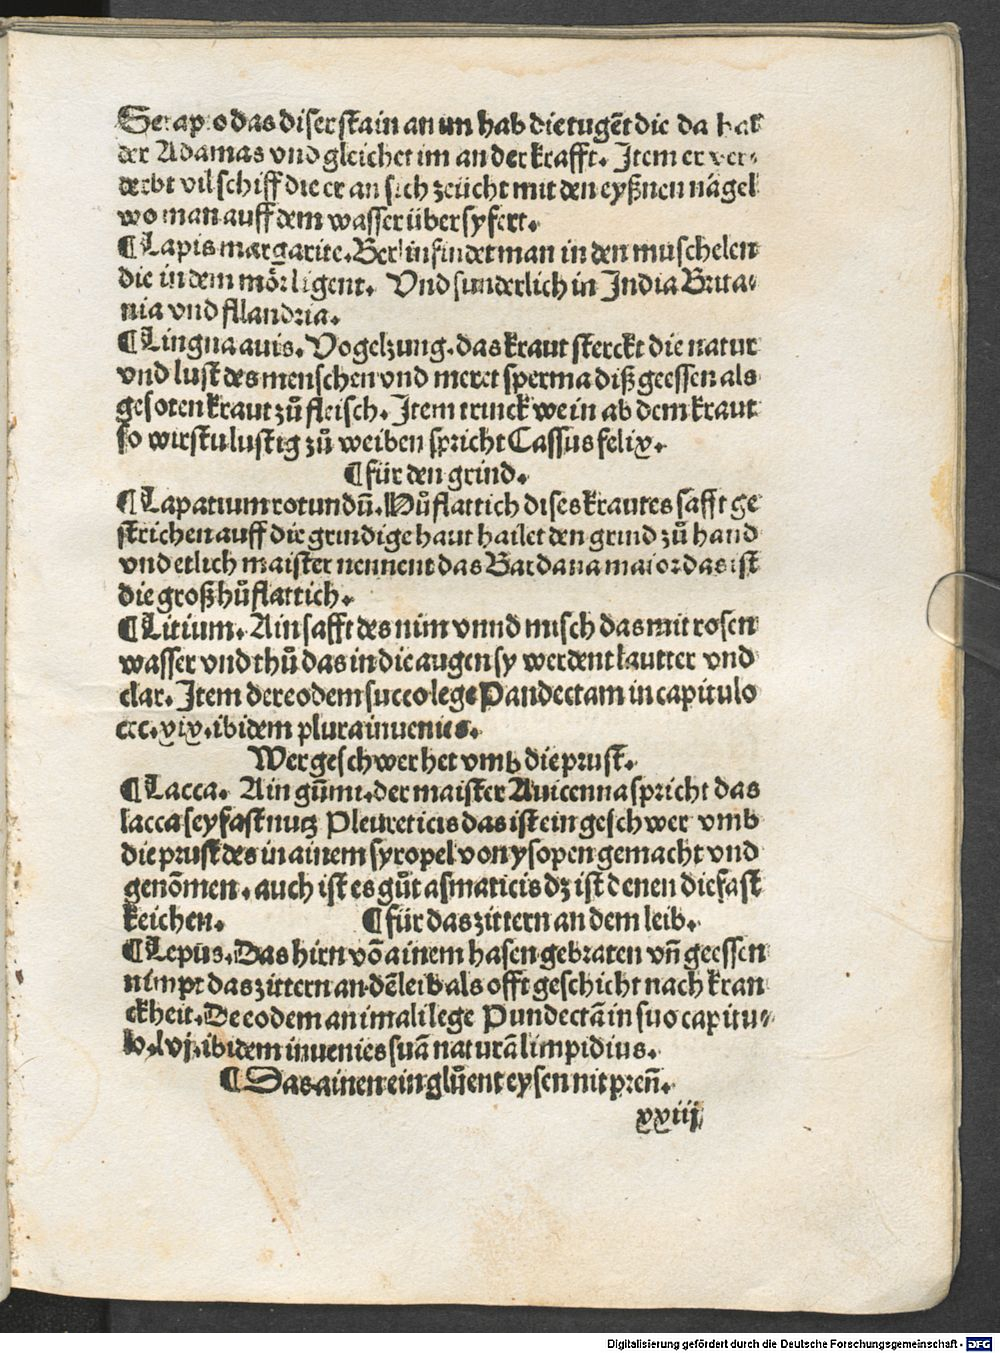 Serapio das diser stain an im hab die tugēt die da hat
der Adamas vnd gleichet im an der krafft. Item er ver-
derbt vil schiff die er an sich zeücht mit den eyßnen nägel
wo man auff dem wasser übersyfert.
¶ Lapis margarite. Berlin findet man in den muschelen
die in dem mör ligent. Vnd sunderlich in India Brita-
nia vnd fllandria.
¶ Lingna auis. Vogelzung. das kraut sterckt die natur
vnd lust des menschen vnd meret sperma diß geessen als
gesoten kraut zů fleisch. Item trinck wein ab dem kraut
so wirstu lustig zů weiben spricht Cassus felix.
¶ für den grind.
¶ Lapatium rotundū. Hůflattich dises krautes safft ge
strichen auff die grindige haut hailet den grind zů hand
vnd etlich maister nennent das Bardana maior das ist
die groß hůflattich.
¶ Litium. Ain safft des nim vnnd misch das mit rosen
wasser vnd thů das in die augen sy werdent lautter vnd
clar. Item de eodem succo lege Pandectam in capitulo
ccc.xix. ibidem plura inuenies.
Wer geschwer het vmb die prust.
¶ Lacca. Ain gūmi. der maister Auicenna spricht das
lacca sey fast nutz Pleureticis das ist ein geschwer vmb
die prust des in ainem syropel von ysopen gemacht vnd
genōmen. auch ist es gůt asmaticis dz ist denen die fast
keichen. ¶ für das zittern an dem leib.
¶ Lepus. Das hirn vō ainem hasen gebraten vn̄ geessen
nimpt das zittern an dē leib als offt geschicht nach kran
ckheit. De eodem animali lege Pundectā in suo capitu-
lo. lvj. ibidem inuenies suā naturā limpidius.
¶ Das ainen ein glůent eysen nit pren̄.
xxiij
Digitalisierung gefördert durch die Deutsche Forschungsgemeinschaft - DFG